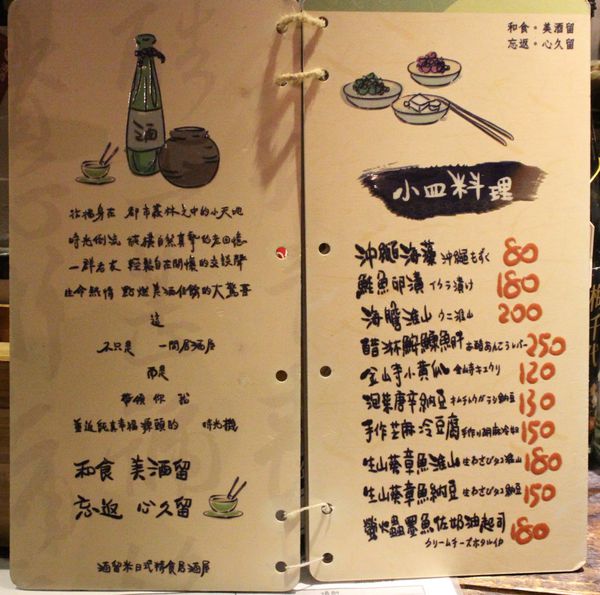 酒
拈描身在 都市叢林之中的小天地
時光倒流 純樸自然真摯的老回憶
一群老友 輕鬆自在開懷的交談聲
生命熱情 點燃美酒佳餚的大驚喜
這
不只是 一間居酒屋
而是
帶領 你 我
著返純真幸福源頭的 時光機
和食 美酒留
忘返 心久留
酒留米日式精食居酒屋
和食。美酒留
忘返。心久留
小皿料理
沖繩海藻 沖縄もずく 80
鮭魚卵漬 イクラ漬け 180
海膽淮山 ウニ淮山 200
醋淋鮟鱇魚肝 お酢あんこうレバー 250
金山寺小黃瓜 金山寺キュウリ 120
泡菜唐辛納豆 キムチトウガラシ納豆 130
手作芝麻冷豆腐 手作り胡麻冷奴 150
生山葵章魚淮山 生わさびタコ淮山 180
生山葵章魚納豆 生わさびタコ納豆 150
螢火蟲墨魚佐奶油起司 180
クリームチーズホタルイカ